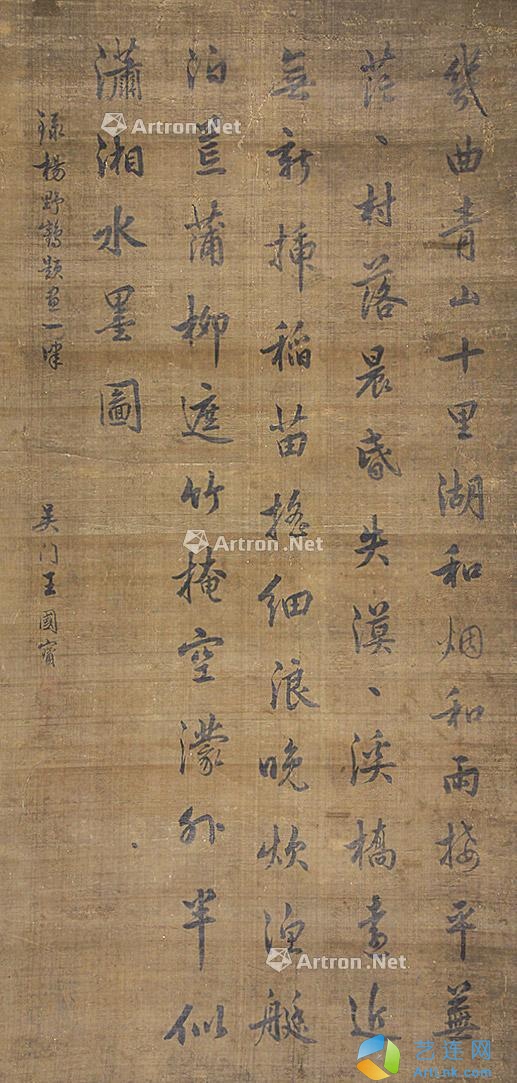 幾曲青山十里湖和烟和雨接平蕪
茫、村落晨昏失漠、溪橋遠近
無新挿稻苗搖細浪晚炊漁艇
泊苽蒲柳遮竹掩空濛外半似
瀟湘水墨圖
錄楊野鶴題畫一律
吳門王國寶
Artron.Net
Artron.Net
Artron.Net
艺连网